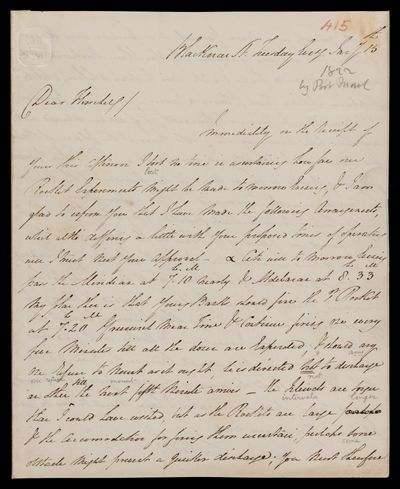 415
Blackman St. Tuesday Evg Jany 15th
1822
by Post Mark
Dear Herschel/
Immediately on the receipt of
yours this afternoon I lost no time in ascertaining how far our
lost
Rocket Experiments might be made tomorrow Evening & I am
glad to inform you that I have made the following Arrangements,
which altho differing a little with your proposed times of operation
will I trust meet your approval — α Ceti will tomorrow Evening
pass the Meridian at 7h 10m nearly & Aldebaran at 8h 33m
My plan then is that your Battle should fire the 1st Rocket
at 7h 20m Greenwich Mean Time & Continue firing one every
five Minutes till all the dozen are Expended, & should any
any
one refuse to mount as it ought he is directed not to discharge
one refuse mount not
another till the next fifth Minute arrives — the Intervals are longer
intervals longer
than I could have wished, but as the Rockets are large
& the accomodation for firing them uncertain perhaps some
some
obstacle might prevent a quicker discharge. You must therefore